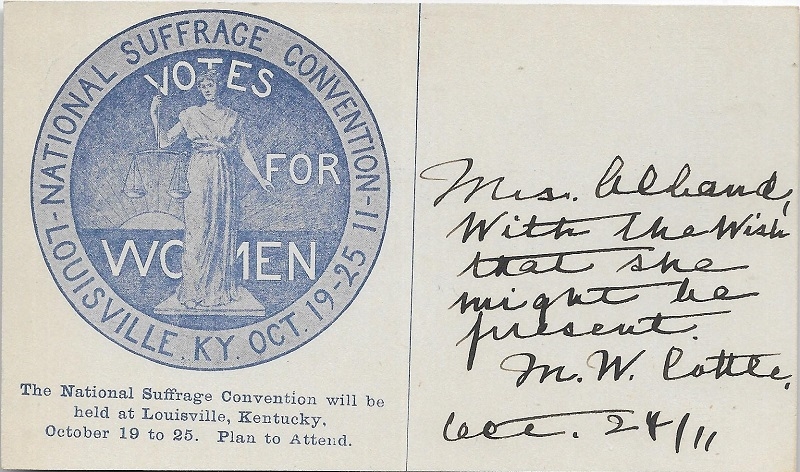 -NATIONAL SUFFRAGE CONVENTION-
LOUISVILLE, KY. OCT. 19-25 11
VOTES
FOR
WOMEN
The National Suffrage Convention will be
held at Louisville, Kentucky,
October 19 to 25. Plan to Attend.
Mrs.
With the Wish
that she
might be
present.
M. W. Cottle,
Oct. 24/11